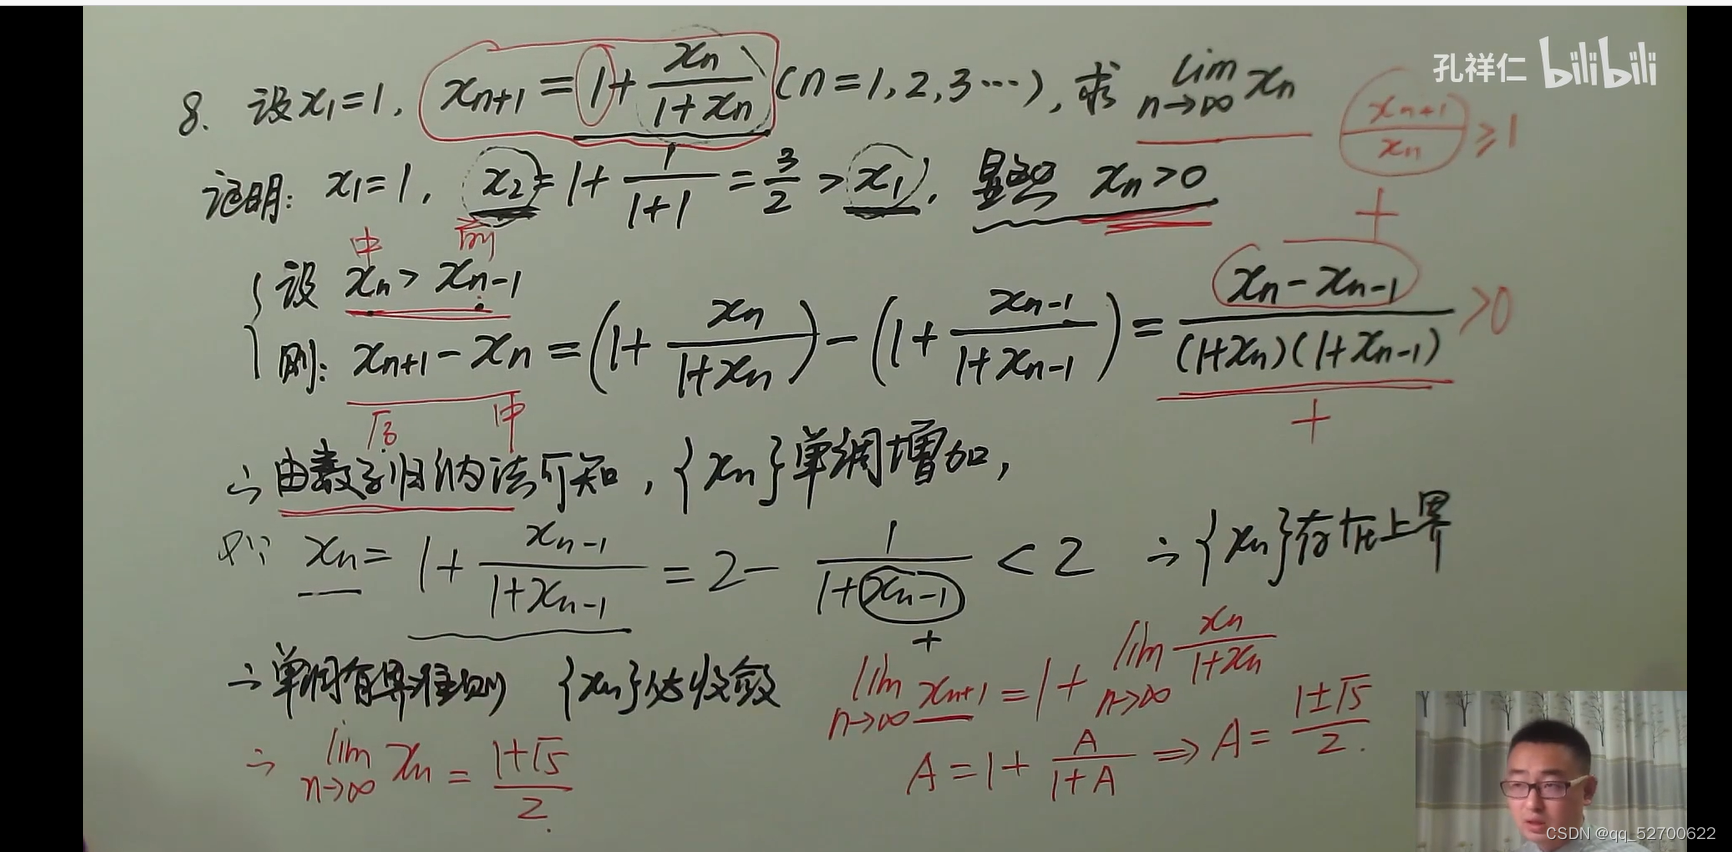 孔祥仁 bilibili
8. 设x₁=1, xₙ₊₁ = 1 + xₙ/(1+xₙ) (n=1,2,3⋯), 求 lim_{n→∞} xₙ
xₙ₊₁/xₙ ≥ 1
证明: x₁=1, x₂ = 1 + 1/(1+1) = 3/2 > x₁, 显然 xₙ>0
+
中 前
设 xₙ > xₙ₋₁
则: xₙ₊₁ - xₙ = (1 + xₙ/(1+xₙ)) - (1 + xₙ₋₁/(1+xₙ₋₁)) = (xₙ - xₙ₋₁)/((1+xₙ)(1+xₙ₋₁)) >0
后 中 +
∴ 由数学归纳法可知, {xₙ}单调增加,
又∵ xₙ = 1 + xₙ₋₁/(1+xₙ₋₁) = 2 - 1/(1+xₙ₋₁) < 2 ∴ {xₙ}存在上界
+
∴ 单调有界准则 {xₙ}收敛
lim_{n→∞} xₙ₊₁ = 1 + lim_{n→∞} xₙ/(1+xₙ)
A = 1 + A/(1+A) ⇒ A = (1±√5)/2.
∴ lim_{n→∞} xₙ = (1+√5)/2.
CSDN @qq_52700622